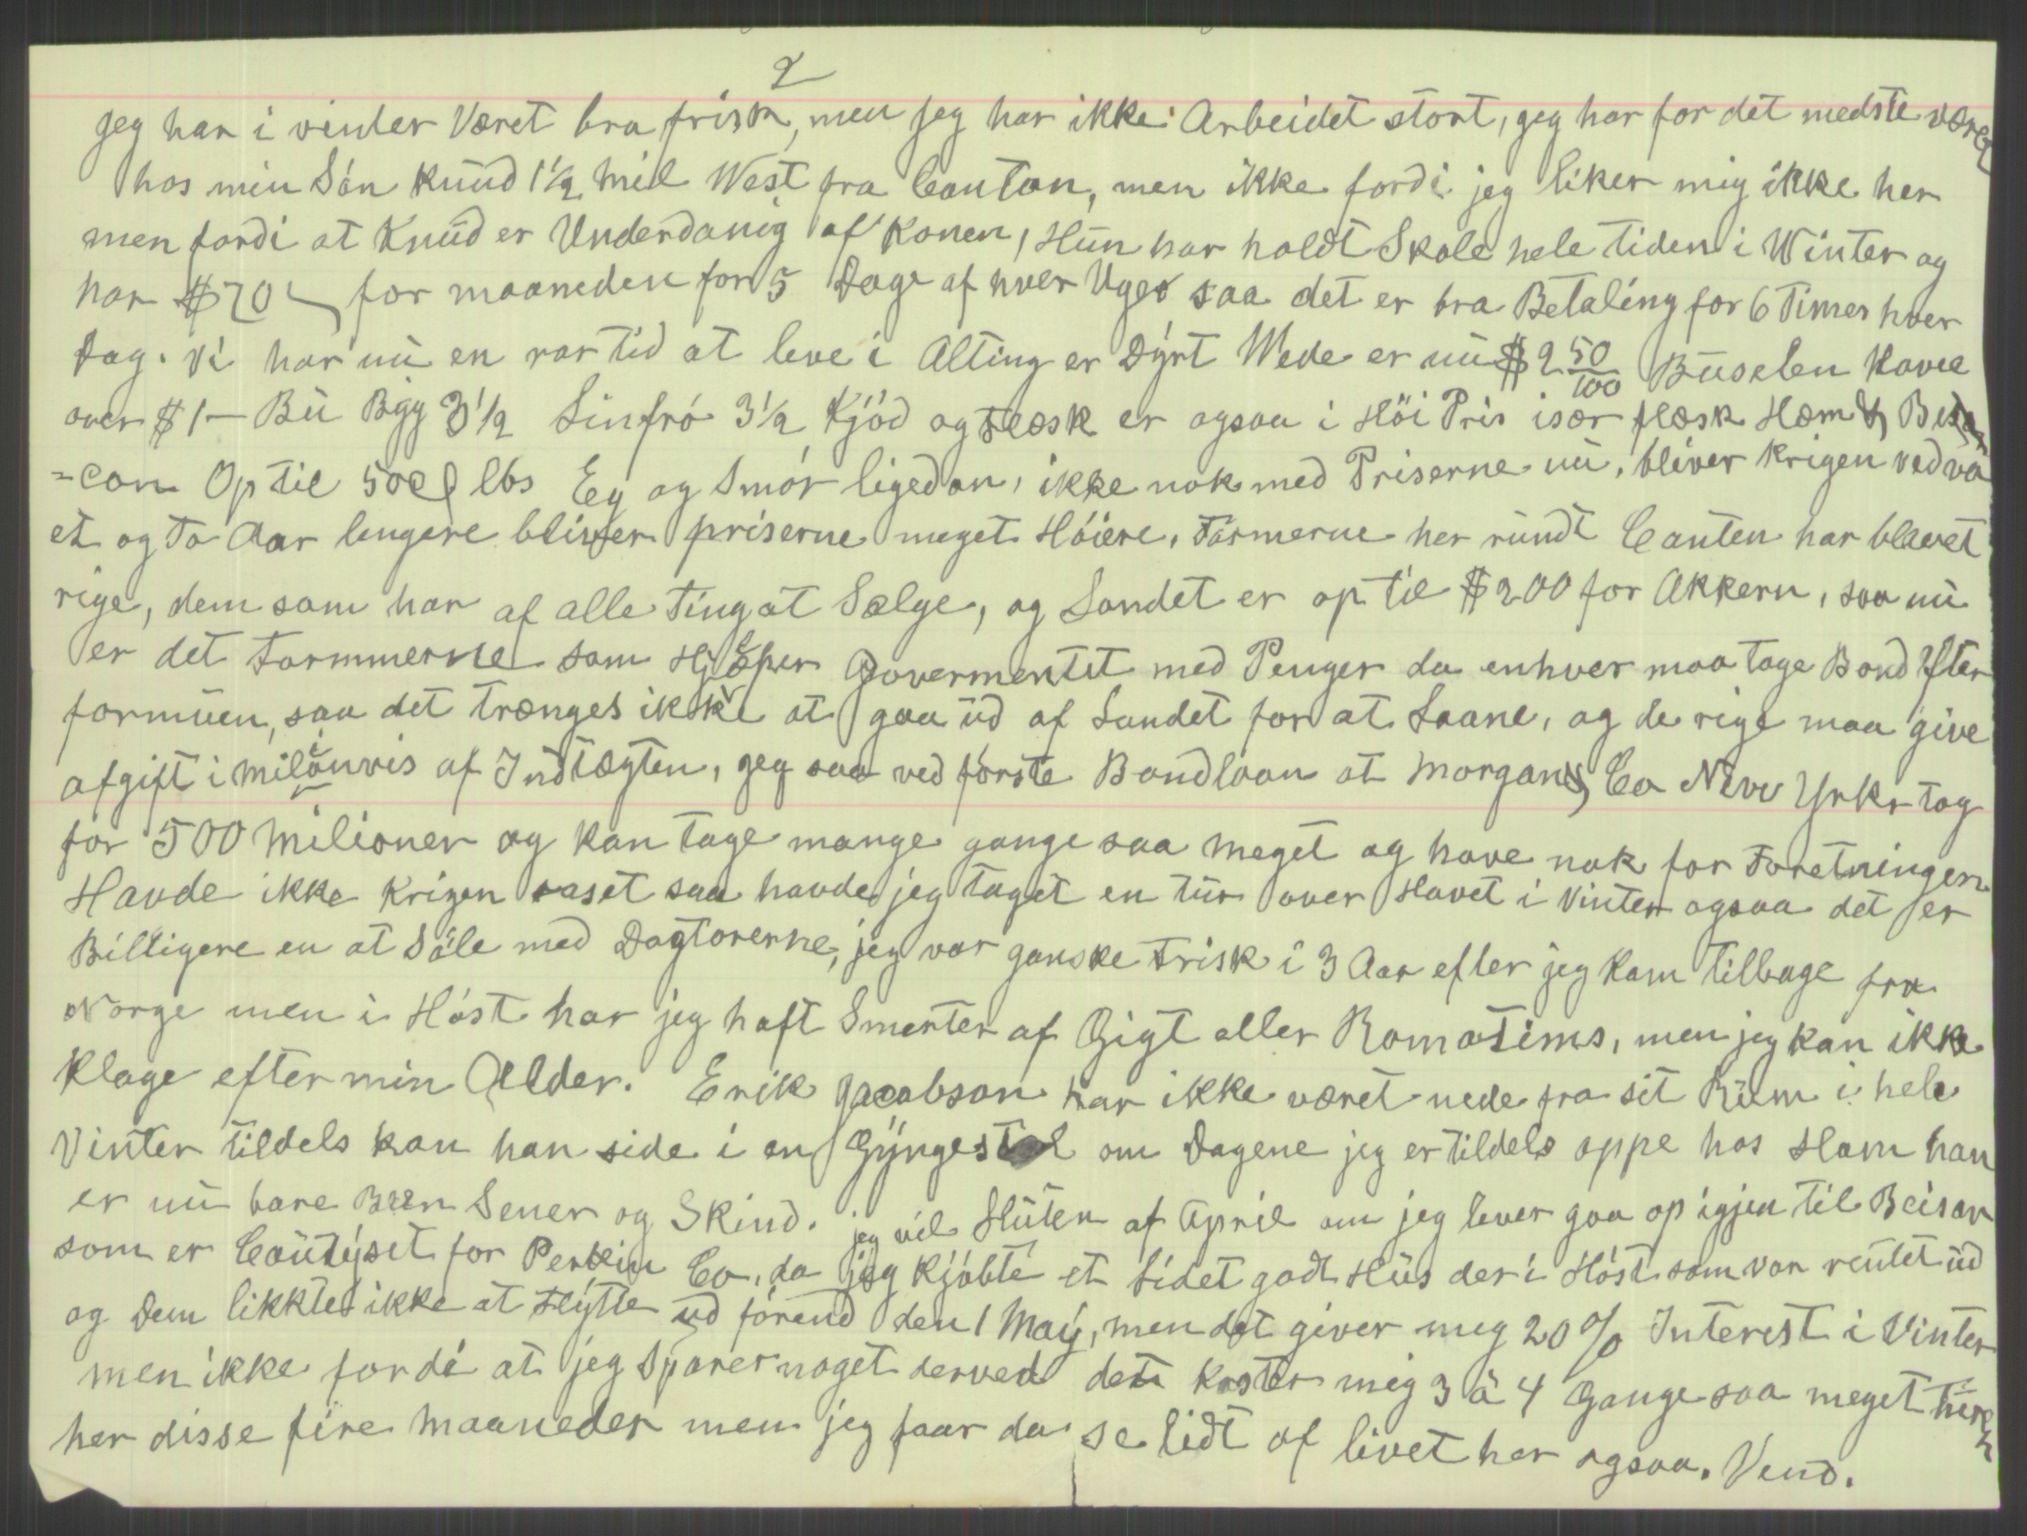 2
jeg har i vinter Været bra frisk, men jeg har ikke Arbeidet stort, jeg har for det medste været
hos min Sön Knud 1 1/2 Mil West fra Canton, men ikke fordi jeg liker mig ikke her
men fordi at Knud er Underdanig af Konen, Hun har holdt Skole hele tiden i Winter og
har $70 for maaneden for 5 Dage af hver Uge saa det er bra Betaling for 6 Timer hver
Dag. Vi har nu en rar tid at leve i Alting er Dyrt Wede er nu $2 50/100 Buselen Havre
over $1 - Bu Byg 3 1/2 Linfrö 3 1/2 Kjöd og Flæsk er ogsaa i Höi Pris især flæsk Hæm &
=con Op til 50 c lbs Eg og Smör ligedan, ikke nok med Priserne nu, bliver Krigen ved va
et og to Aar lengere bliver priserne meget Höiere, Farmerne her rundt Canten har blevet
rige, dem som har af alle Ting at Sælge, og Landet er op til $200 for Akkern, saa nu
er det Farmmerne som Hjælper Govermentet med Penger da enhver maa tage Bond yfter
formuen, saa det trænges ikke at gaa ud af Landet for at Laane, og de rige maa give
afgift i milionvis af Indtægten, jeg saa ved förste Bondlaan at Morgan & Co New Yrkr tog
for 500 Milioner og kan tage mange gange saa meget og have nok for Foretningen
Havde ikke Krigen raset saa havde jeg taget en tur over Havet i Vinter ogsaa det er
Billigere en at Söle med Dagtorerne, jeg var ganske Frisk i 3 Aar efter jeg kam tilbage fra
Norge men i Höst har jeg haft Smerter af Gigt eller Romatims, men jeg kan ikke
Klage efter min Alder. Erik Jacobson har ikke været nede fra sit Rum i hele
Vinter tildels kan han side i en Gyngestol om Dagene jeg er tildels oppe hos Ham han
er nu bare Been Sener og Skind. jeg vil Sluten af April om jeg lever gaa op igjen til Beisan
som er for Perkin Co, da jeg Kjöbte et Lidet godt Hus der i Höst som var rentet ud
og Dem likkte ikke at Flytte ud förend den 1 May, men det giver mig 20% Interest i Vinter
men ikke fordi at jeg Sparer noget derved det koster mig 3 à 4 Gange saa meget
her disse fire Maaneder men jeg faar da se lidt af livet her ogsaa. Vend.